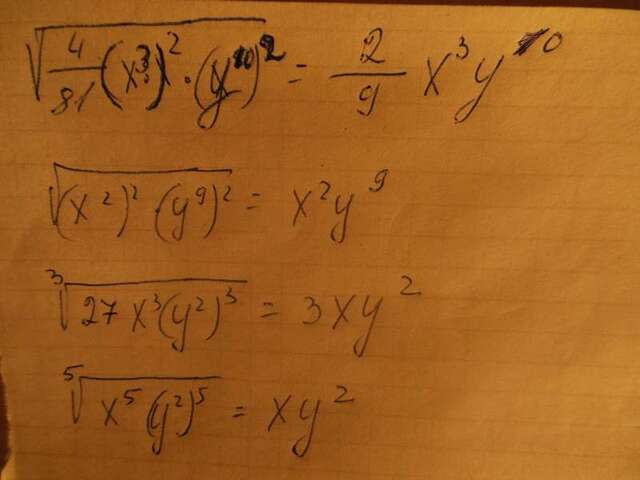 √(4/81 (x³)² · (y¹⁰)²) = 2/9 x³ y¹⁰
√((x²)² · (y⁹)²) = x² y⁹
³√(27 x³ (y²)³) = 3xy²
⁵√(x⁵ (y²)⁵) = xy²